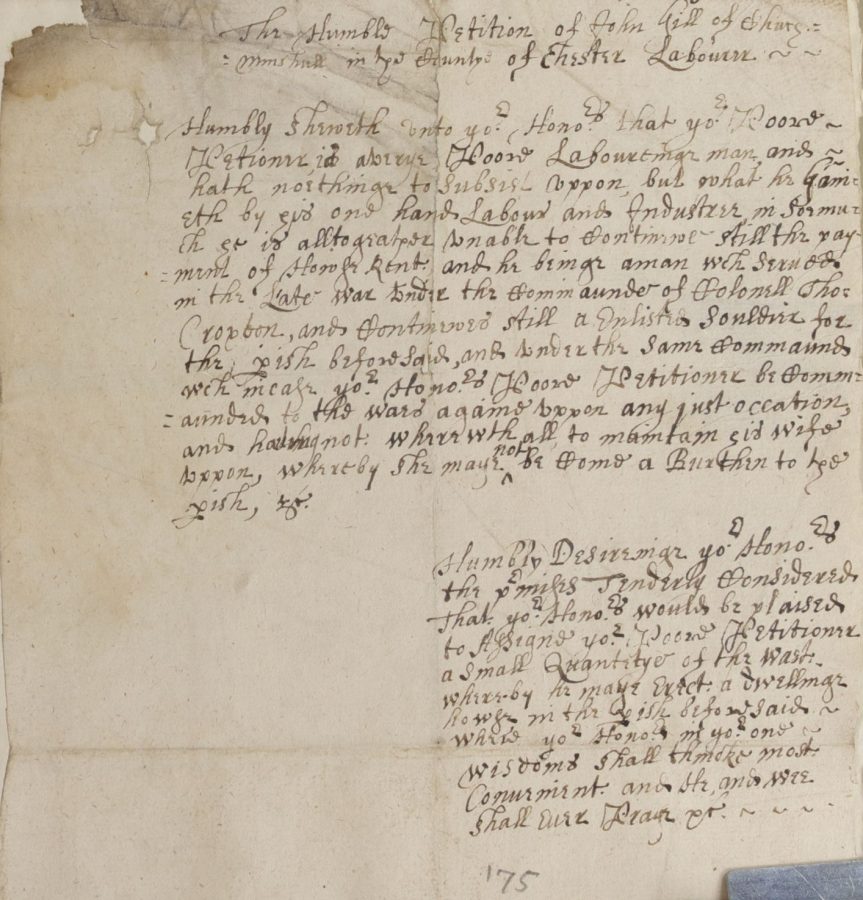 The Humble Petition of John Gill of Church=
=minshull in the Countye of Chester Labourer ~ ~
Humbly Sheweth unto yo:r Hono:rs that yo:r Poore ~
Petioner is a verye Poore Labouringe man and ~
hath noethinge to Subsist uppon, but what he Gain=
eth by his one hand Labour and Industree, in Soemu=
ch he is alltogeather unable to Continewe still the pay=
=ment of Howse Rent and he beinge a man wch served
in the Late War under the Commaunde of Colonell Tho:
Croxton, and Continewes still a Enlisted Souldier for
the pish beforesaid, and under the same Commaund
wch incase yo:r Hono:rs Poore Petitioner be Comm=
=aunded to the wars againe uppon any just occation,
and having not: wherewth all, to maintain his wife
uppon, whereby she maye not be Come a Burthen to the
pish, &c.
Humbly Desireinge yo:r Hono:rs
the p:rmises Tenderly Considered
That yo:r Hono:rs would be plaised
to Assigne yo:r Poore Petitioner
a small Quantetye of the Wast
whereby he maye Erect a dwellinge
howse in the pish beforesaid ~
where yo:r Hono:rs in yo:r one ~
wisdoms shall thinke most
Convenient and He, and wee
shall Ever Praye &c. ~ ~ ~ ~
175